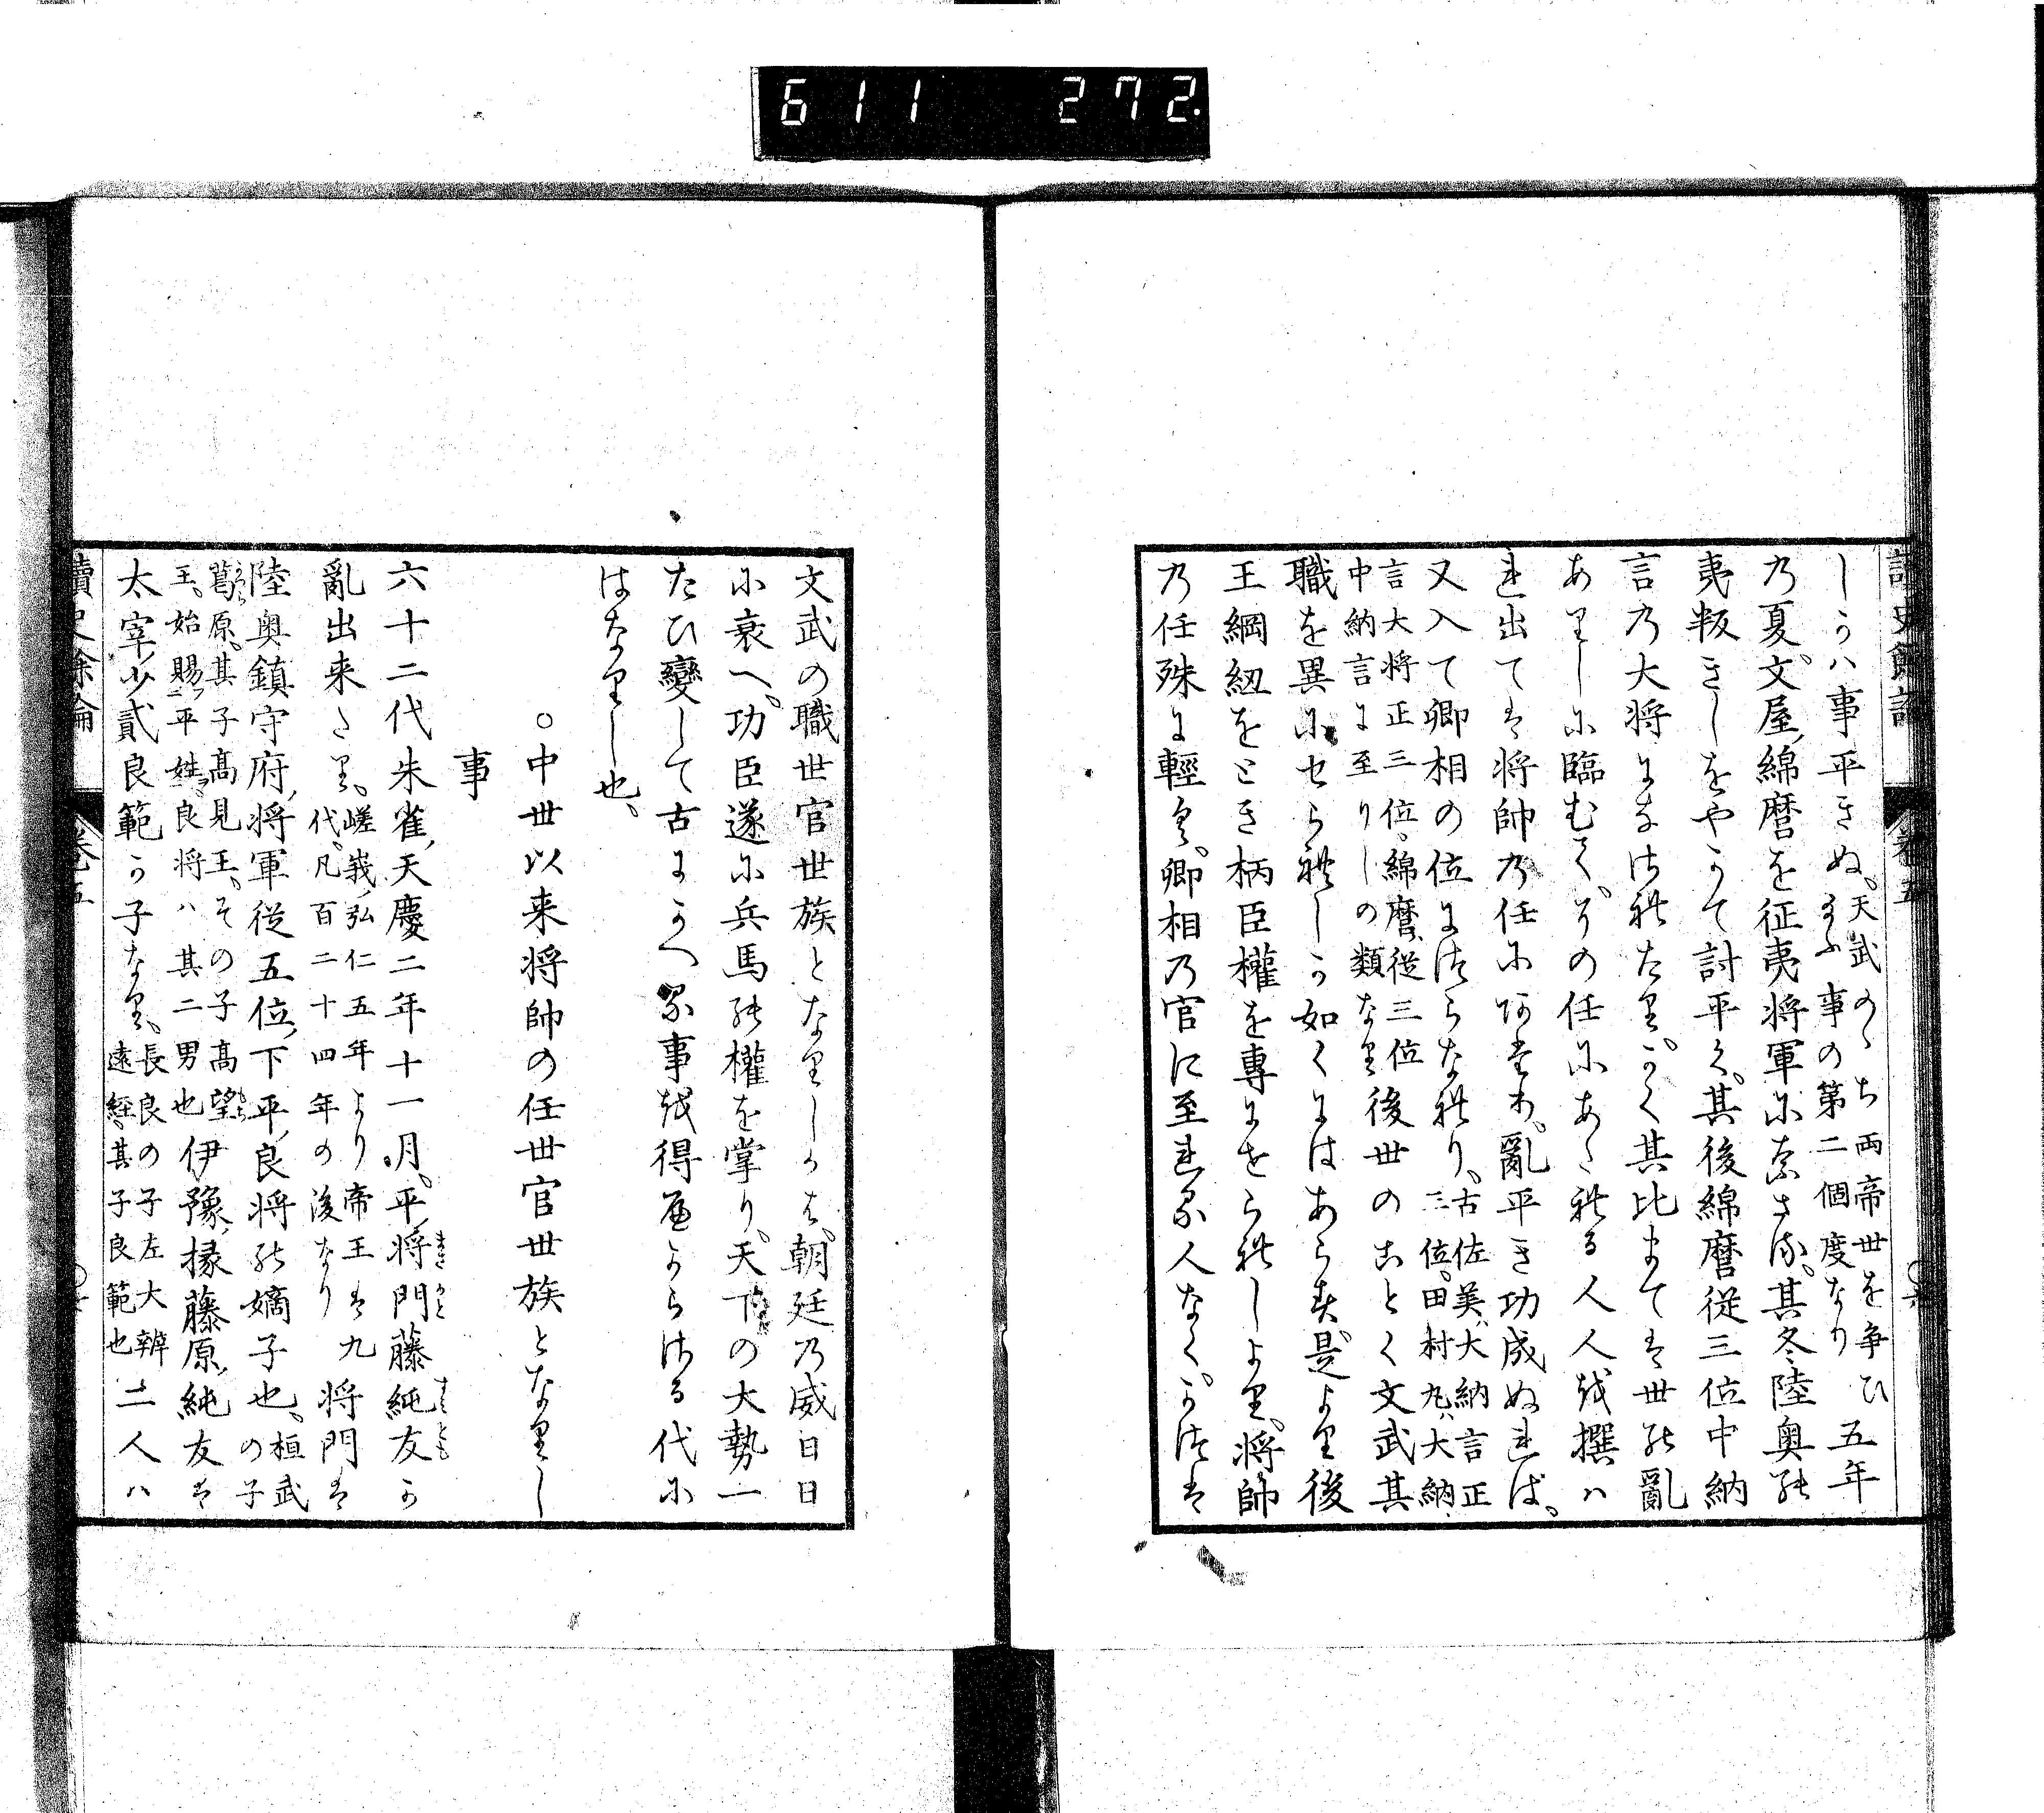 611 272.
讀史餘論 卷五
しかは事平きぬ。天武のゝち両帝世を争ひ
事の第二個度なり 五年
乃夏。文屋、綿麿を征夷将軍になさる。其冬陸奥能
夷叛きしをやかて討平く。其後綿麿従三位中納
言乃大将になされたり。かく其比まては世能亂
ありしに臨むて。その任にあたれる人人を撰ハ
れ出ては将帥乃任にあたり、亂平き功成ぬれば。
又入て卿相の位につらなれり。古佐美、大納言正
三位。田村丸、大納
言大将正三位。綿麿、従三位
中納言に至りしの類なり 後世のことく文武其
職を異にせられしか如くにはあらす。是より後
王綱紐をとき柄臣權を專にせられしより。将帥
乃任殊に輕く。卿相乃官に至れる人なく。かつは
文武の職世官世族となりしかは。朝廷乃威日日
に衰へ。功臣遂に兵馬能權を掌り。天下の大勢一
たひ變して古にかへる事を得へからさる代に
はなりし也。
○中世以来将帥の任世官世族となりし
事
六十二代朱雀、天慶二年十一月。平、将門藤純友か
亂出来たり。嵯峩、弘仁五年より帝王は九
代。凡百二十四年の後なり 将門は
陸奥鎮守府、将軍従五位、下平、良将能嫡子也。桓武
の子
葛原。其子高見王。その子高望
王。始賜フ二平姓ヲ。良将ハ其二男也 伊豫、掾藤原、純友は
太宰、少貳良範か子なり。長良の子左大辨
遠経。其子良範也 二人ハ
讀史餘論 卷五